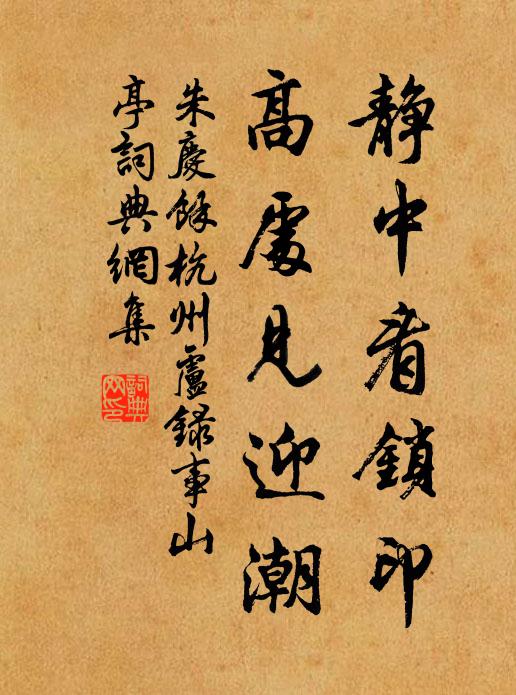 静中看鎖印
高處見迎潮
朱慶餘杭州盧録事山
亭詞典網集
詞典网印